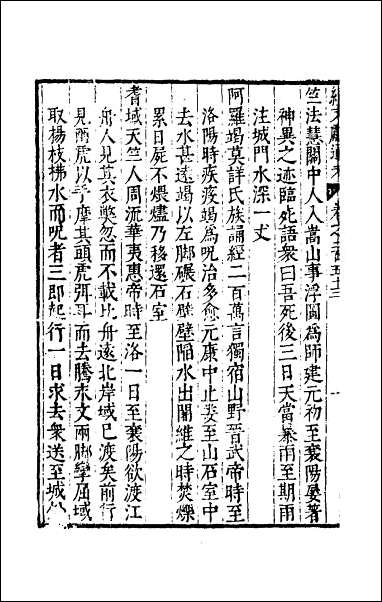 續文獻通考 卷之二百五十三
竺法慧關中人入嵩山事浮圖爲師建元初至襄陽屢著
神異之迹臨死語衆曰吾死後三日天當暴雨至期雨
注城門水深一丈
阿羅竭莫詳氏族誦經二百萬言獨宿山野晉武帝時至
洛陽時疾疫竭爲呪治多愈元康中止婁至山石室中
去水甚遠竭以左脚碾石壁壁陥水出闍維之時焚爍
累日屍不煨燼乃移還石室
耆域天竺人周流華夷惠帝時至洛一日至襄陽欲渡江
舟人見其衣獘忽而不載比舟達北岸域已渡矣前行
見兩虎以手摩其頭虎弭耳而去騰永文兩脚攣屈域
取楊枝拂水而呪者三即起行一日求去衆送至城外